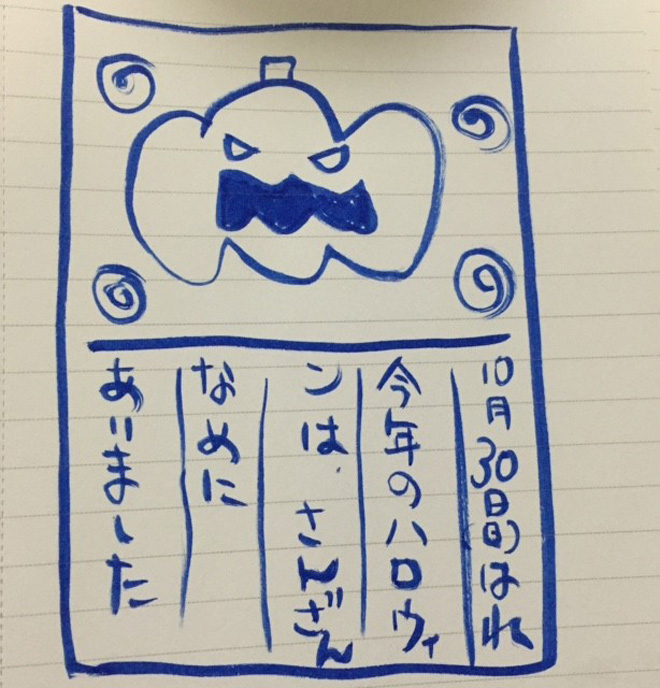 10月30日(日)はれ
今年のハロウィ
ンは、さんざん
なめに
ありました